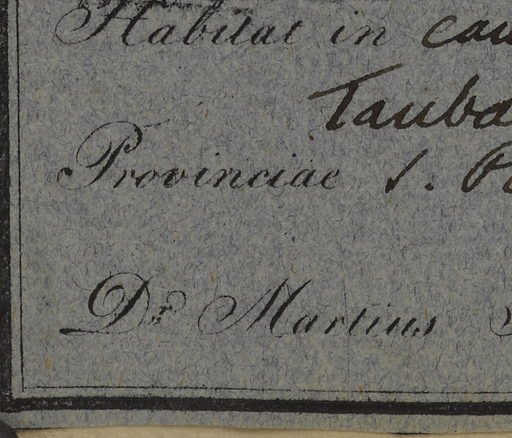 Habitat in
Provinciae S.
Dr. Martius